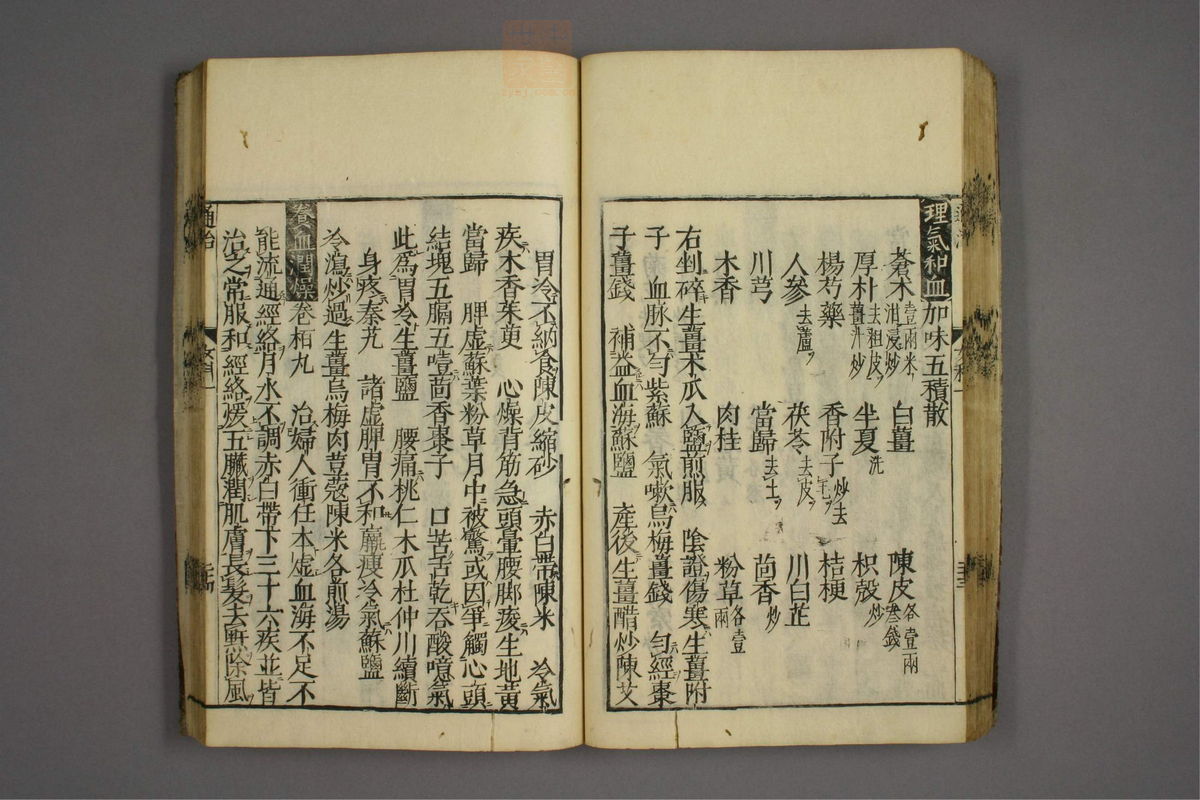 理氣和血加味五積散
蒼朮壹兩米泔浸炒 白薑 陳皮各壹兩叁錢
厚朴去粗皮薑汁炒 半夏洗 枳殼炒
楊芍藥 香附子炒去毛 桔梗
人參去蘆 茯苓去皮 川白芷
川芎 當歸去土 茴香炒
木香 肉桂 粉草各壹兩
右剉碎生薑木瓜入鹽煎服 陰證傷寒生薑附
子 血脉不勻紫蘇 氣嗽烏梅薑錢 勻經棗
子薑錢 補益血海蘇鹽 產後生薑醋炒陳艾
胃冷不納食陳皮縮砂 赤白帶陳米 冷氣
疾木香茱萸 心燥背筋急頭暈腰脚痠生地黃
當歸 脾虛蘇葉粉草月中被驚或因爭觸心頭
結塊五膈五噎茴香棗子 口苦舌乾吞酸噫氣
此爲胃冷生薑鹽 腰痛桃仁木瓜杜仲川續斷
身疼秦艽 諸虛脾胃不和羸瘦冷氣蘇鹽
冷瀉炒過生薑烏梅肉荳蔲陳米各煎湯
養血潤燥卷柏丸 治婦人衝任本虛血海不足不
能流通經絡月水不調赤白帶下三十六疾並皆
治之常服和經絡煖五臟潤肌膚長髮去䵟除風
通治